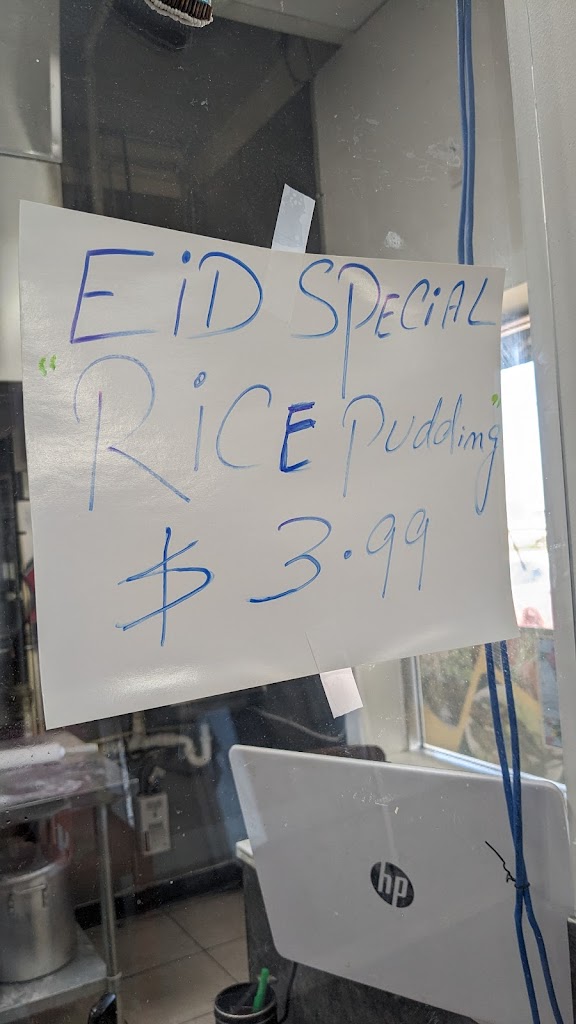 EiD SPECiAL
"RiCE Pudding"
$ 3.99
hp